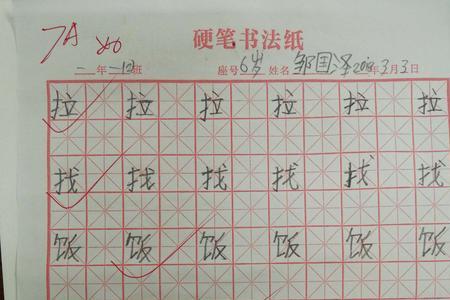 硬笔书法纸
一年一班 座号6岁 姓名 邹国泽 年3月3日
拉 拉 拉 拉 拉 拉
找 找 找 找 找 找
饭 饭 饭 饭 饭 饭